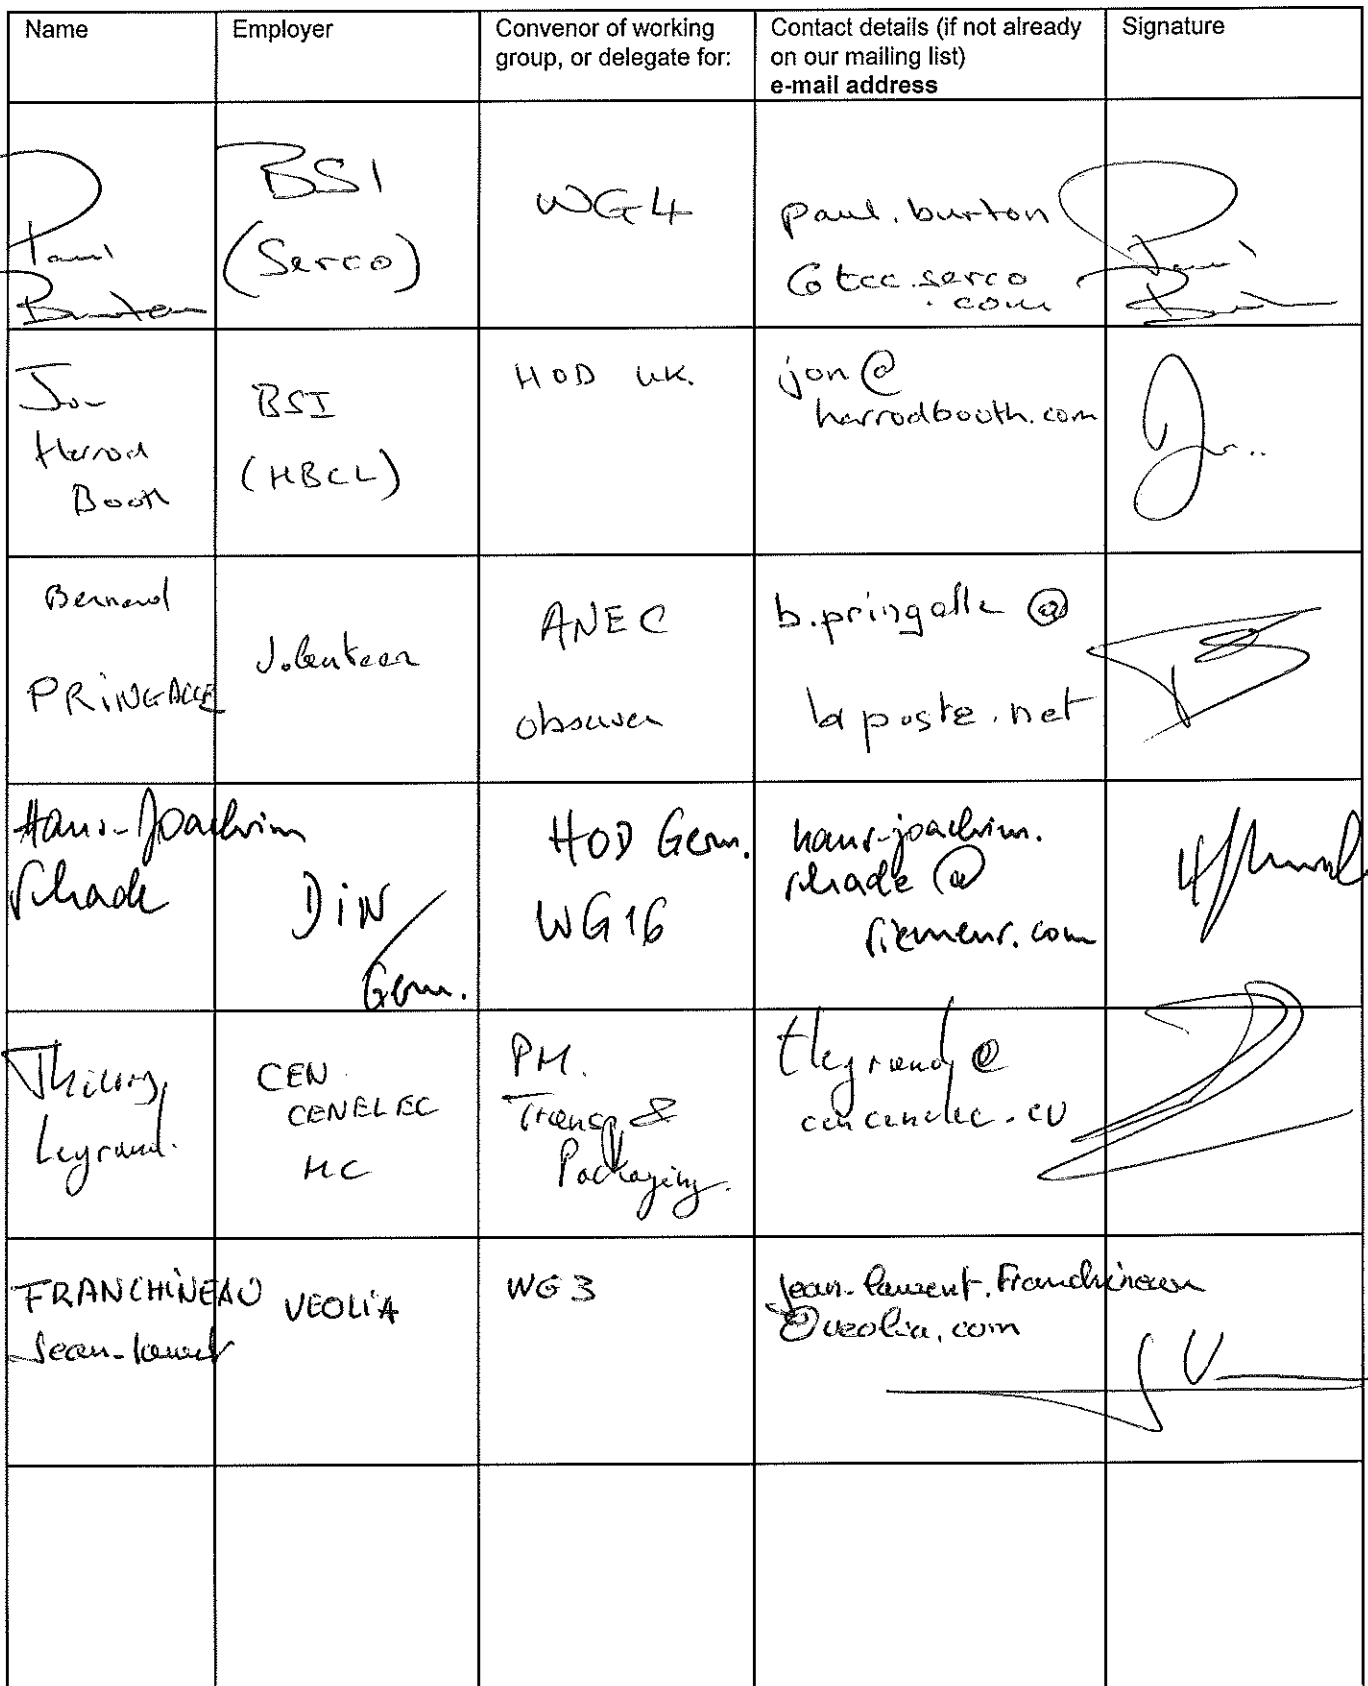 Name
Employer
Convenor of working
group, or delegate for:
Contact details (if not already
on our mailing list)
e-mail address
Signature
Paul
Burton
BSI
(Serco)
WG4
paul.burton
@tcc.serco
.com
Paul
Jon
Harrod
Booth
BSI
(HBCL)
HOD UK.
jon@
harrodbooth.com
Bernard
PRINGALLE
Volunteer
ANEC
observer
b.pringalle @
laposte.net
Hans-Joachim
Schade
DiN/
Germ.
HOD Germ.
WG16
hans-joachim.
schade @
siemens.com
Thierry
Legrand.
CEN
CENELEC
MC
PM.
Transp &
Packaging.
tlegrand@
cencenelec.eu
FRANCHINEAU
Jean-Laurent
VEOLiA
WG3
jean-laurent.Franchineau
@veolia.com